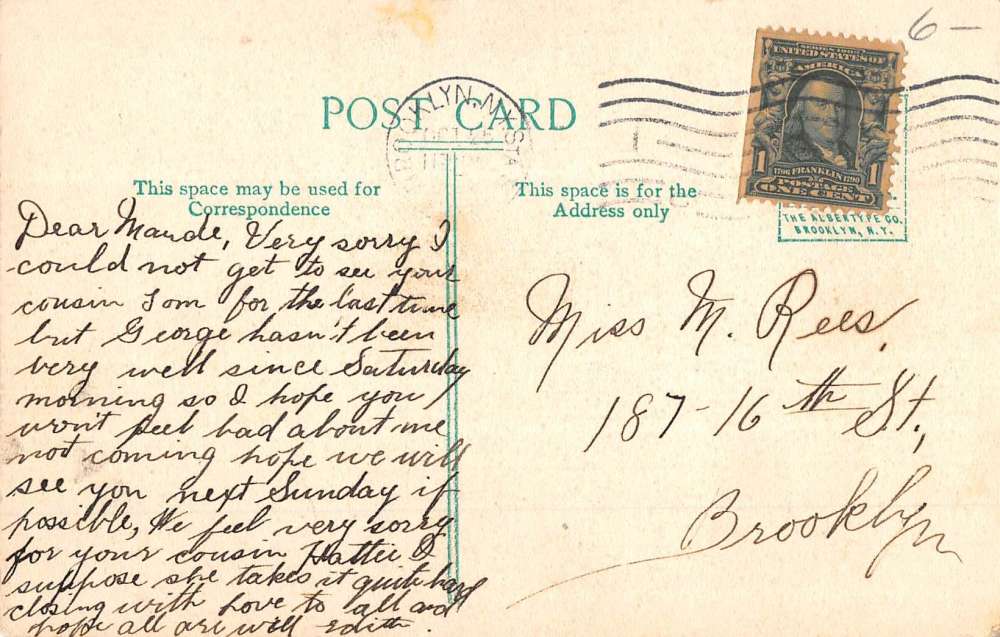 6-
SERIES 1902
UNITED STATES OF
AMERICA
1706 FRANKLIN 1790
1 POSTAGE 1
ONE CENT
POST CARD
BROOKLYN, N.Y. STA.
OCT 25
This space may be used for
Correspondence
This space is for the
Address only
THE ALBERTYPE CO.
BROOKLYN, N.Y.
Dear Maude, Very sorry I
could not get to see your
cousin Tom for the last time
but George hasn't been
very well since Saturday
morning so I hope you
won't feel bad about me
not coming hope we will
see you next Sunday if
possible, We feel very sorry
for your cousin Hattie I
suppose she takes it quite hard
closing with love to all and
hope all are well Edith.
Miss M. Rees,
187-16th St.,
Brooklyn